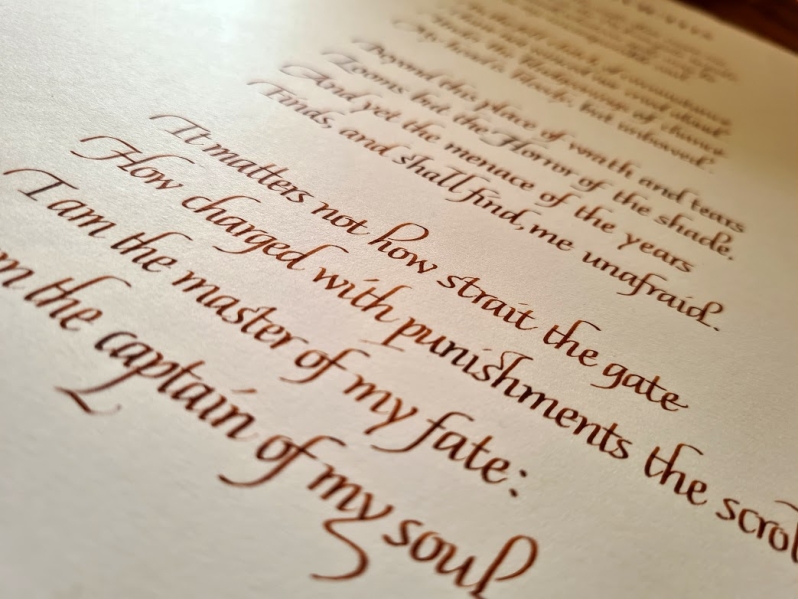 My head is bloody, but unbowed.
Beyond this place of wrath and tears
Looms but the Horror of the shade,
And yet the menace of the years
Finds, and shall find, me unafraid.
It matters not how strait the gate
How charged with punishments the scrol
I am the master of my fate:
m the captain of my soul